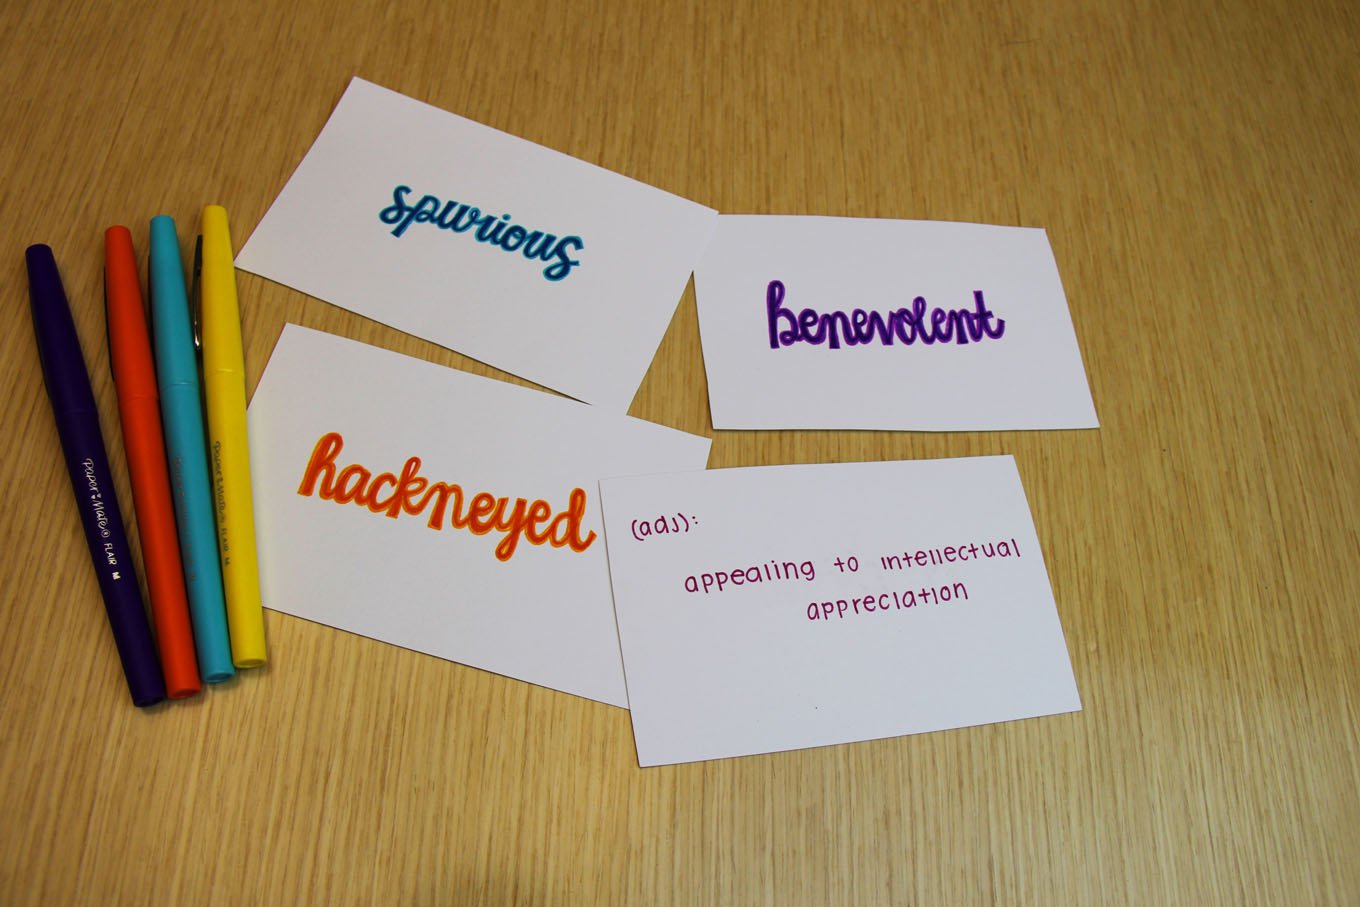 spurious
benevolent
hackneyed
(adj):
appealing to intellectual
appreciation
Paper Mate® FLAIR M